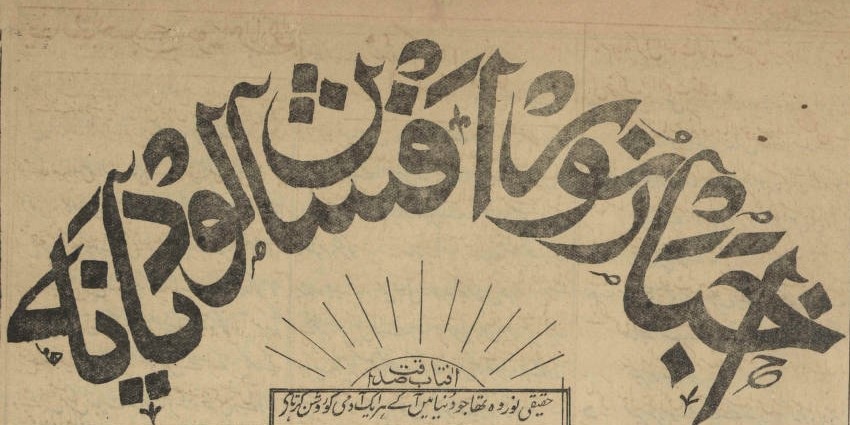 اخبار نور افشان لودیانہ
آفتاب صداقت
حقیقی نور وہ تھا جو دنیا میں آ کے ہر ایک آدمی کو روشن کرتا ہی